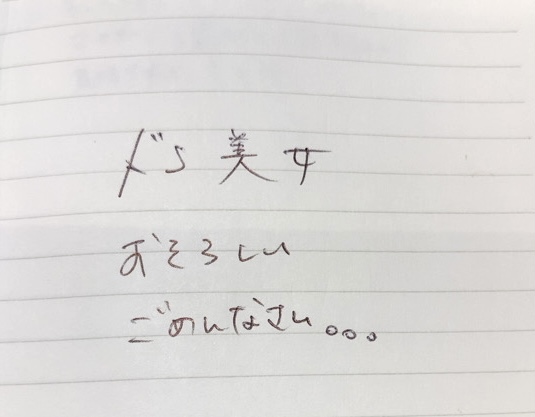 ドS美女
おそろしい
ごめんなさい。。。